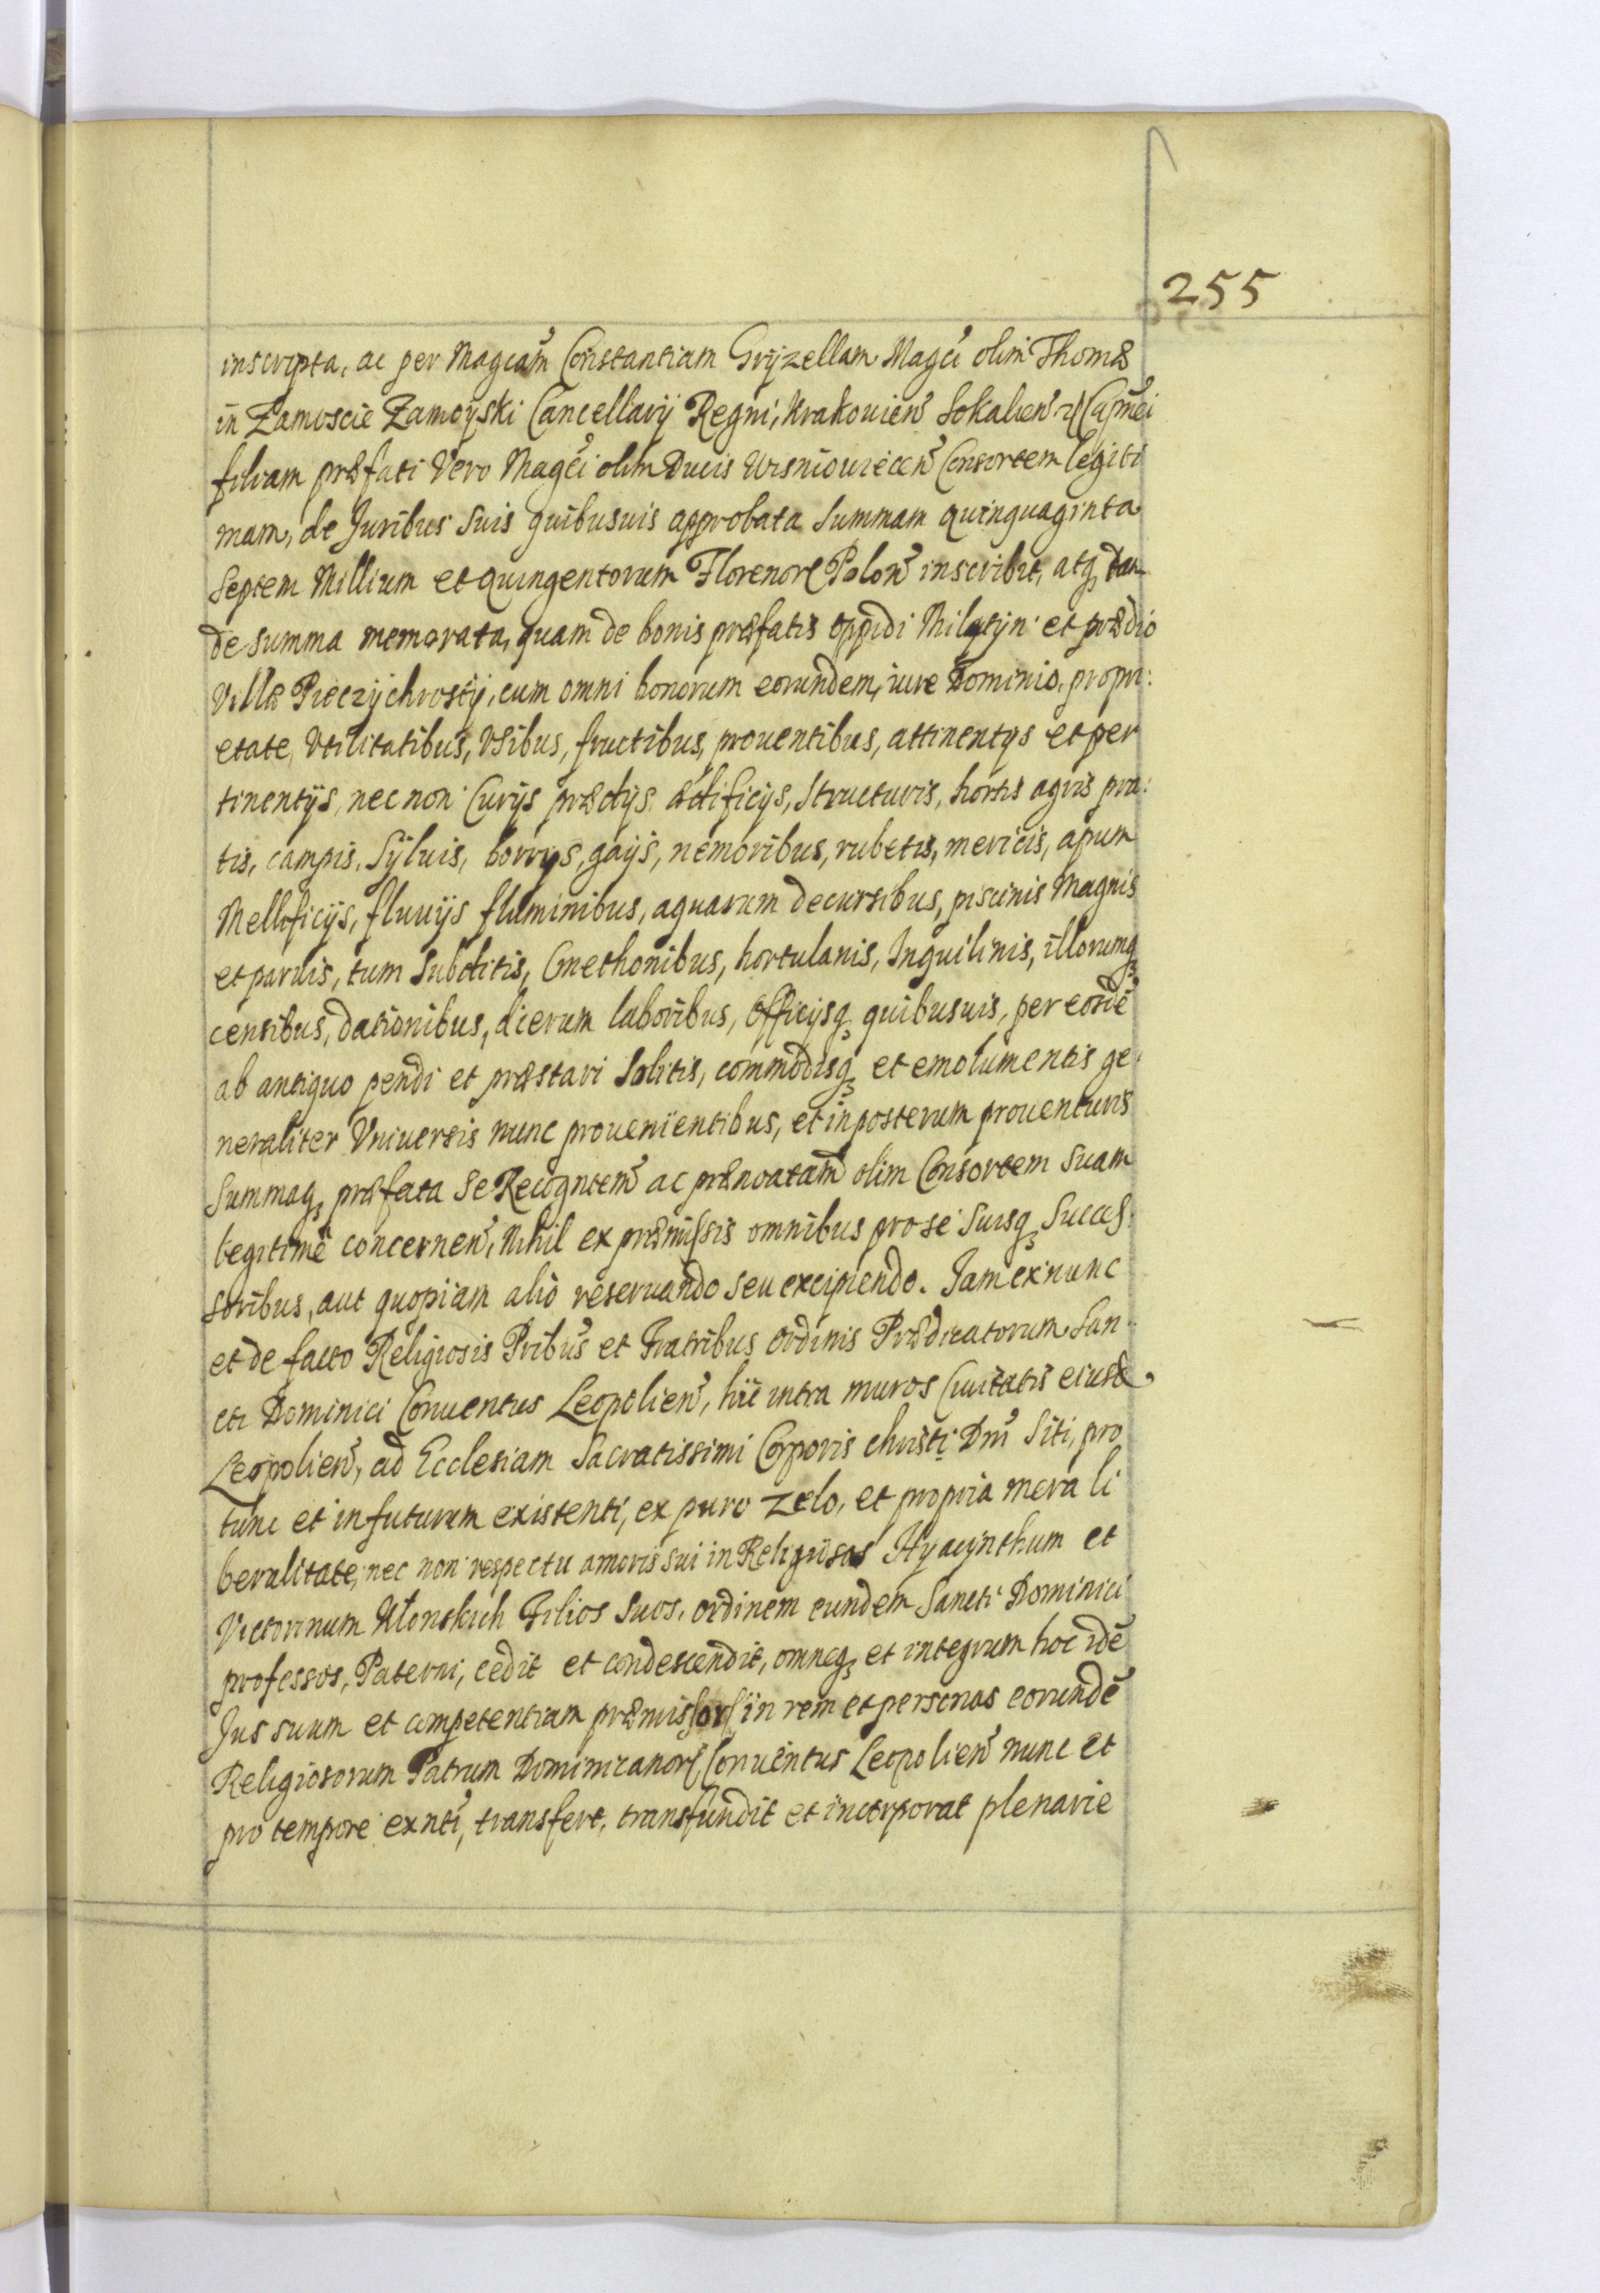 255
inscripta, ac per Magcam̃ Constantiam Gryzellam Magci olim Thomæ
in Zamoscie Zamoyski Cancellarÿ Regni, Krakouien̄ Sokalien̄
filiam præfati Vero Magci olim Ducis Wisniouiecen̄ Consortem legiti
mam, de Juribus suis quibusuis approbata summam quinquaginta
septem Millium et quingentorum Florenor Polon̄ inscribit, atq
de summa memorata, quam de bonis præfatis oppidi Milatÿn et prædio
Villæ Pieczÿchrostÿ, cum omni bonorum eorundem, iure Dominio, propri:
etate, Vtilitatibus, Vsibus, fructibus, prouentibus, attinentÿs et per
tinentÿs, nec non Curÿs prædÿs ædificÿs, structuris, hortis agris pra:
tis, campis, Sÿluis, borrÿs, gaÿs, nemoribus, rubetis, mericis, apum
Mellificÿs, fluuÿs fluminibus, aquarum decursibus, piscinis Magnis
et paruis, tum subditis, Cmethonibus, hortulanis, Inquilinis, illorumq
censibus, dationibus, dierum laboribus, officÿsq quibusuis, per eosdē
ab antiquo pendi et præstari solitis, commodisq et emolumentis ge
neraliter Vniuersis nunc prouenientibus, et inposterum prouenturis
summaq præfata se Recogntem̄ ac prænoatam̄ olim Consortem suam
legitimē concernen̄, Nihil ex præmissis omnibus pro se suisq succes
soribus, aut quopiam alio reseruando seu excipiendo. Jam ex nunc
et de facto Religiosis Pribus et Fratribus ordinis Prædicatorum San
cti Dominici Conuentus Leopolien̄, hic intra muros Ciuitatis eiusd
Leopolien̄, ad Ecclesiam Sacratissimi Corporis christi Dni siti, pro
tunc et in futurum existenti, ex puro zelo, et propria mera li
beralitate, nec non respectu amoris sui in Religiosos Hyacÿnthum et
Victorinum Ulonskich Filios suos, ordinem eundem Sancti Dominici
professos, Paterni, cedit et condescendit, omneq et integrum hoc idē
Jus suum et competentiam præmissor in rem et personas eorundē
Religiosorum Patrum Dominicanor Conuentus Leopolien̄ nunc et
pro tempore exnti, transfert, transfundit et incorporat plenarie